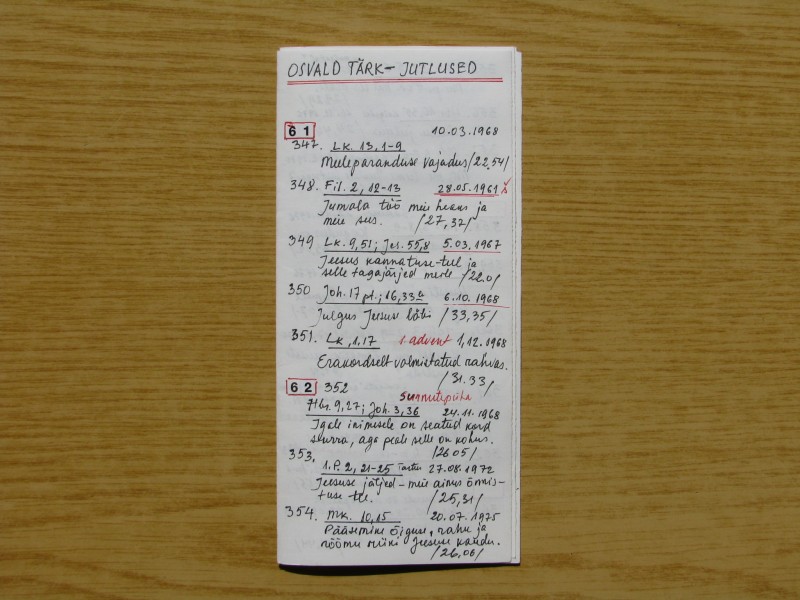 OSVALD TÄRK - JUTLUSED
61 10.03.1968
347. Lk. 13,1-9
Meeleparanduse vajadus /22,54/
348. Fil. 2, 12-13 28.05.1961
Jumala töö meie heaks ja
meie sees. /27,32/
349 Lk. 9,51; Jes. 55,8 5.03.1967
Jeesus kannatuse-teel ja
selle tagajärjed meile /22.0/
350 Joh. 17 pt.; 16,33a 6.10.1968
Julgus Jeesuse läbi /33,35/
351. Lk, 1.17 1. advent 1,12.1968
Erakordselt valmistatud rahvas.
/31.33/
62 352 Surnutepüha
Hbr. 9,27; Joh. 3,36 24.11.1968
Igale inimesele on seatud kord
surra, aga peale selle on kohus.
/26 05/
353.
1.P. 2, 21-25 Tartu 27.08.1972
Jeesuse jäljed - meie ainus õnnis-
tuse tee. /25,31/
354. Mk. 10,15 20.07.1975
Pääsemine õiguse, rahu ja
rõõmu riiki Jeesuse kaudu.
/26,06/